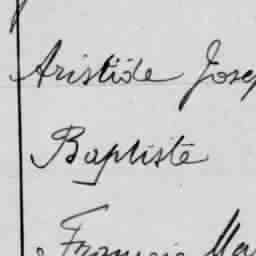 Aristide Josep
Baptiste
Francis Ma